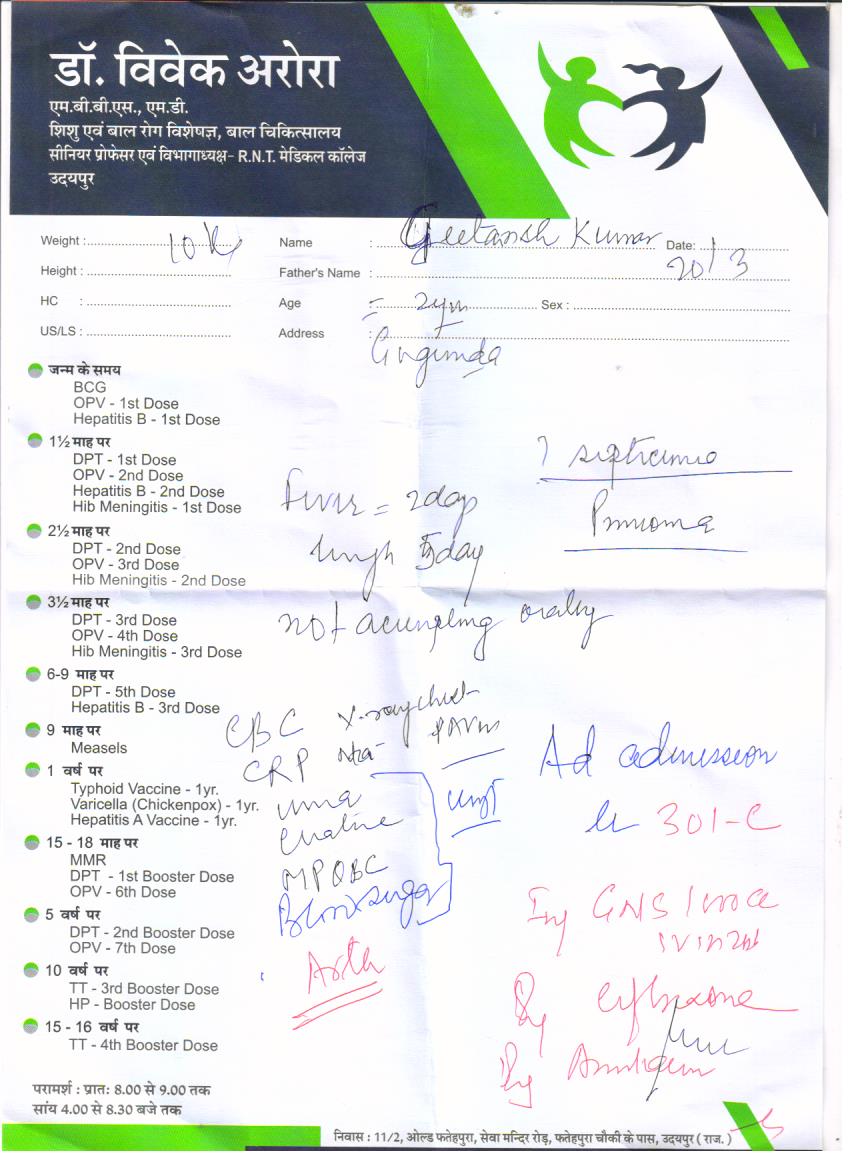 डॉ. विवेक अरोरा
एम.बी.बी.एस., एम.डी.
शिशु एवं बाल रोग विशेषज्ञ, बाल चिकित्सालय
सीनियर प्रोफेसर एवं विभागाध्यक्ष- R.N.T. मेडिकल कॉलेज
उदयपुर
Weight : 10 K Name : Geetansh Kumar Date: 20/3
Height : Father's Name :
HC : Age = 2yrs Sex :
US/LS : Address :
जन्म के समय
BCG
OPV - 1st Dose
Hepatitis B - 1st Dose
1½ माह पर
DPT - 1st Dose
OPV - 2nd Dose
Hepatitis B - 2nd Dose
Hib Meningitis - 1st Dose
2½ माह पर
DPT - 2nd Dose
OPV - 3rd Dose
Hib Meningitis - 2nd Dose
3½ माह पर
DPT - 3rd Dose
OPV - 4th Dose
Hib Meningitis - 3rd Dose
6-9 माह पर
DPT - 5th Dose
Hepatitis B - 3rd Dose
9 माह पर
Measels
1 वर्ष पर
Typhoid Vaccine - 1yr.
Varicella (Chickenpox) - 1yr.
Hepatitis A Vaccine - 1yr.
15 - 18 माह पर
MMR
DPT - 1st Booster Dose
OPV - 6th Dose
5 वर्ष पर
DPT - 2nd Booster Dose
OPV - 7th Dose
10 वर्ष पर
TT - 3rd Booster Dose
HP - Booster Dose
15 - 16 वर्ष पर
TT - 4th Booster Dose
? septicemia
Fever = 2day
Cough 5day
not accepting orally
CBC X-ray chest
CRP
MPQBC
Blood sugar
Ad admission
301-C
परामर्श : प्रातः 8.00 से 9.00 तक
सांय 4.00 से 8.30 बजे तक
निवास : 11/2, ओल्ड फतेहपुरा, सेवा मन्दिर रोड़, फतेहपुरा चौकी के पास, उदयपुर ( राज. )